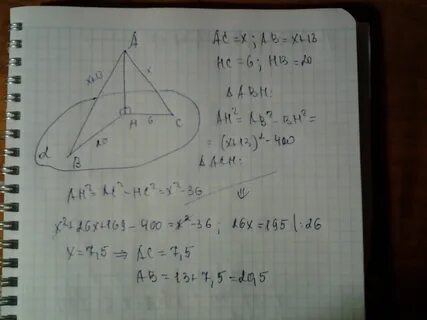 A
x+13
x
H
6
C
20
B
α
AC = x ; AB = x+13
HC = 6 ; HB = 20
△ABH:
AH² = AB² - BH² =
= (x+13)² - 400
△ACH:
AH² = AC² - HC² = x² - 36
⇓
x² + 26x + 169 - 400 = x² - 36 ; 26x = 195 | : 26
x = 7,5 ⇒ AC = 7,5
AB = 13 + 7,5 = 20,5